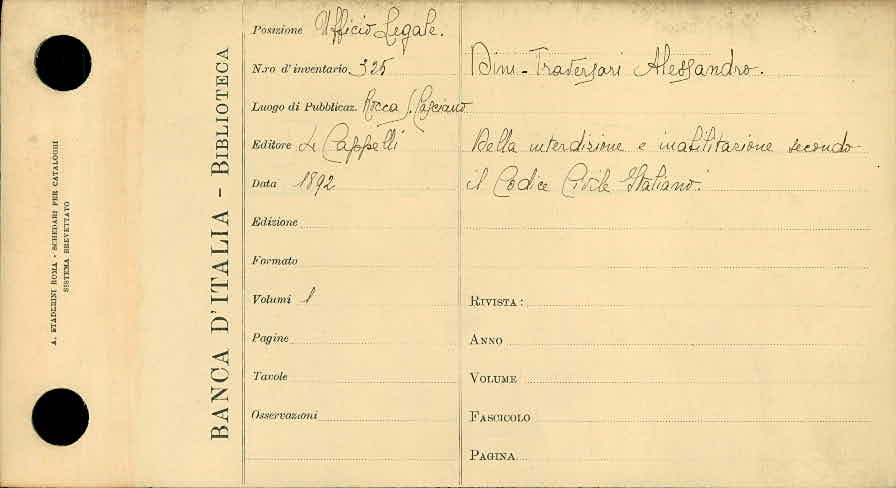 A. STADERINI ROMA - SCHEDARI PER CATALOGHI
SISTEMA BREVETTATO
BANCA D'ITALIA - BIBLIOTECA
Posizione Ufficio Legale.
N.ro d'inventario 325
Luogo di Pubblicaz. Rocca S. Casciano
Editore L. Cappelli
Data 1892
Edizione
Formato
Volumi 1
Pagine
Tavole
Osservazioni
Dini-Traversari Alessandro.
Della interdizione e inabilitazione secondo
il Codice Civile Italiano.
RIVISTA:
ANNO
VOLUME
FASCICOLO
PAGINA